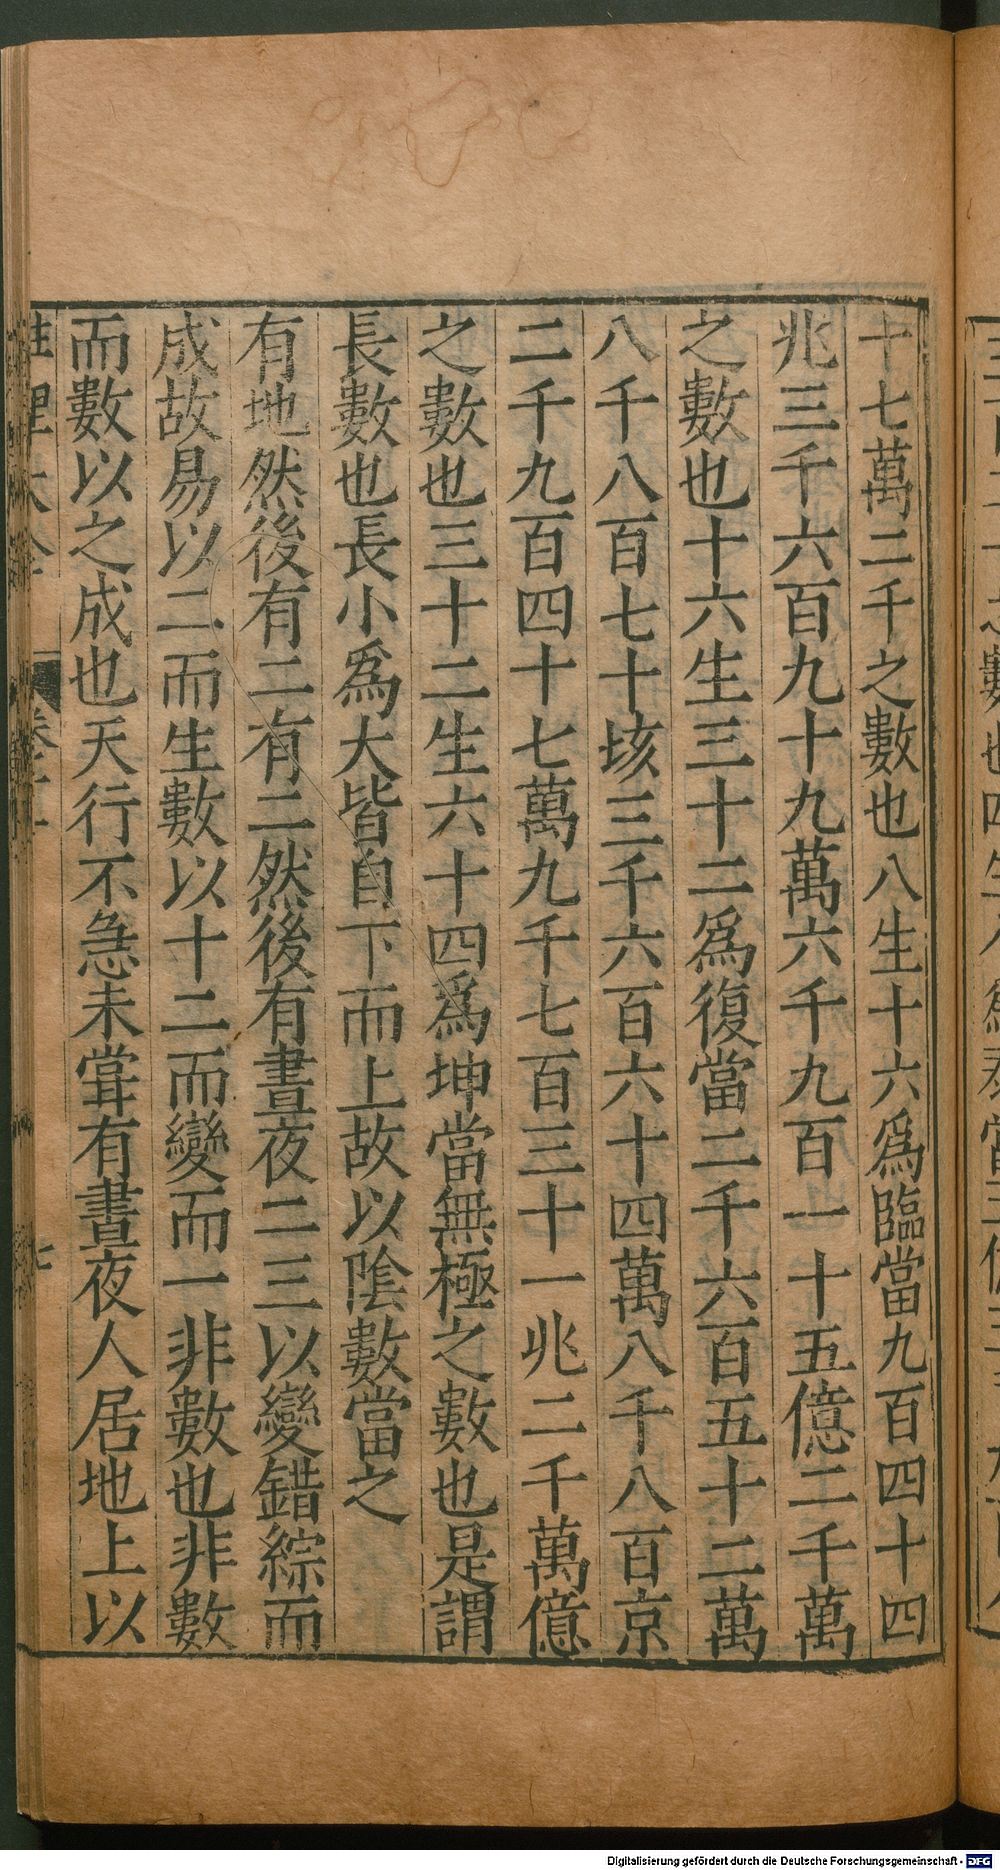 十七萬二千之數也八生十六爲臨當九百四十四
兆三千六百九十九萬六千九百一十五億二千萬
之數也十六生三十二爲復當二千六百五十二萬
八千八百七十垓三千六百六十四萬八千八百京
二千九百四十七萬九千七百三十一兆二千萬億
之數也三十二生六十四爲坤當無極之數也是謂
長數也長小爲大皆自下而上故以陰數當之
有地然後有二有二然後有晝夜二三以變錯綜而
成故易以二而生數以十二而變而一非數也非數
而數以之成也天行不急未嘗有晝夜人居地上以
性理大全
七
Digitalisierung gefördert durch die Deutsche Forschungsgemeinschaft - DFG